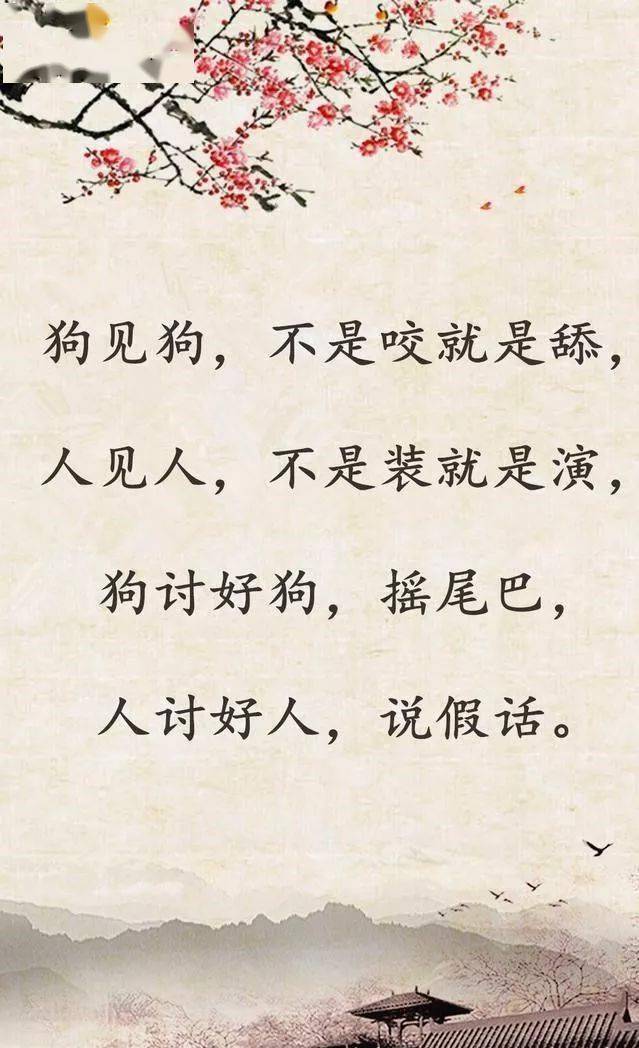 狗见狗，不是咬就是舔，
人见人，不是装就是演，
狗讨好狗，摇尾巴，
人讨好人，说假话。